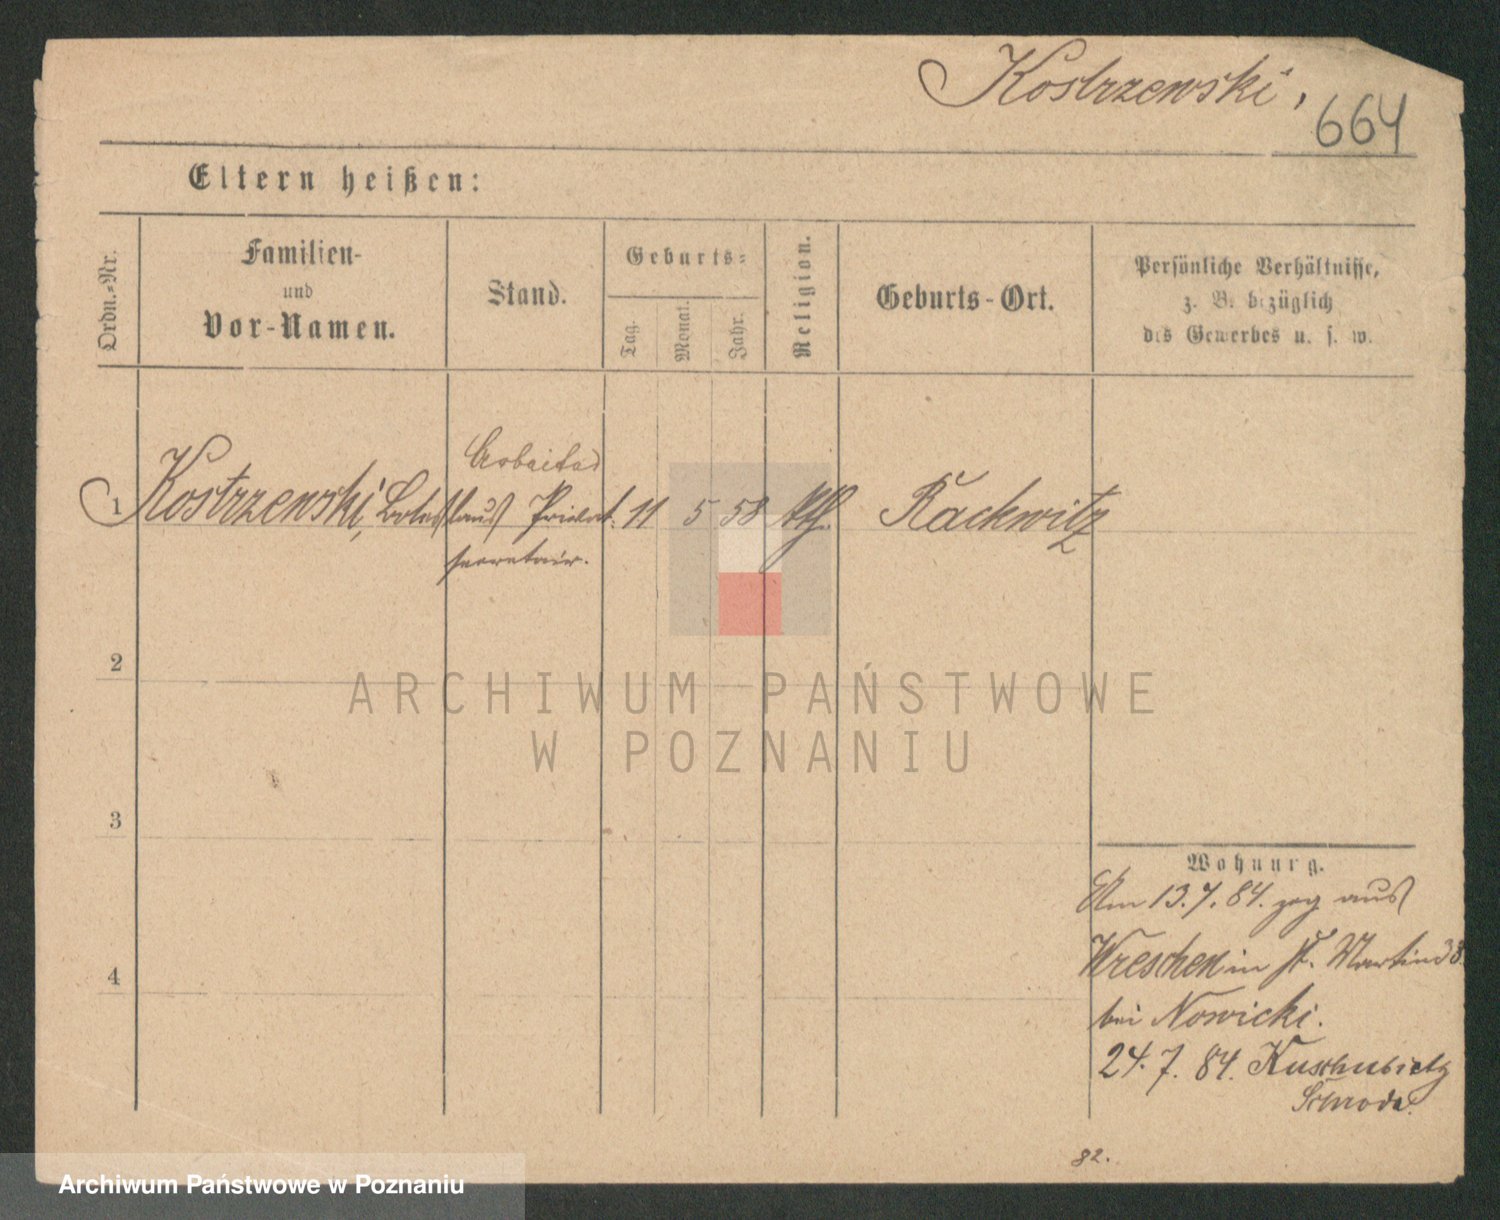 Kostrzewski,
664
Eltern heißen:
Ordn.-Nr.
Familien-
und
Vor-Namen.
Stand.
Geburts-
Tag.
Monat.
Jahr.
Religion.
Geburts-Ort.
Persönliche Verhältnisse,
z. B. bezüglich
des Gewerbes u. s. w.
1 Kostrzewski, Boleslaus Privat 11 5 58 kth. Rackwitz
secretair.
2
ARCHIWUM PAŃSTWOWE
W POZNANIU
3
4
Wohnung.
Am 13.7.84. zog aus
Wreschen in St. Martin 38.
bei Nowicki.
24.7.84.
Schroda.
82.
Archiwum Państwowe w Poznaniu